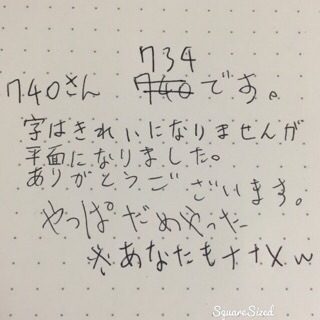 734
740さん 740です。
字はきれいになりませんが
平面になりました。
ありがとうございます。
やっぱだめやった
※あなたもナナメw
SquareSized